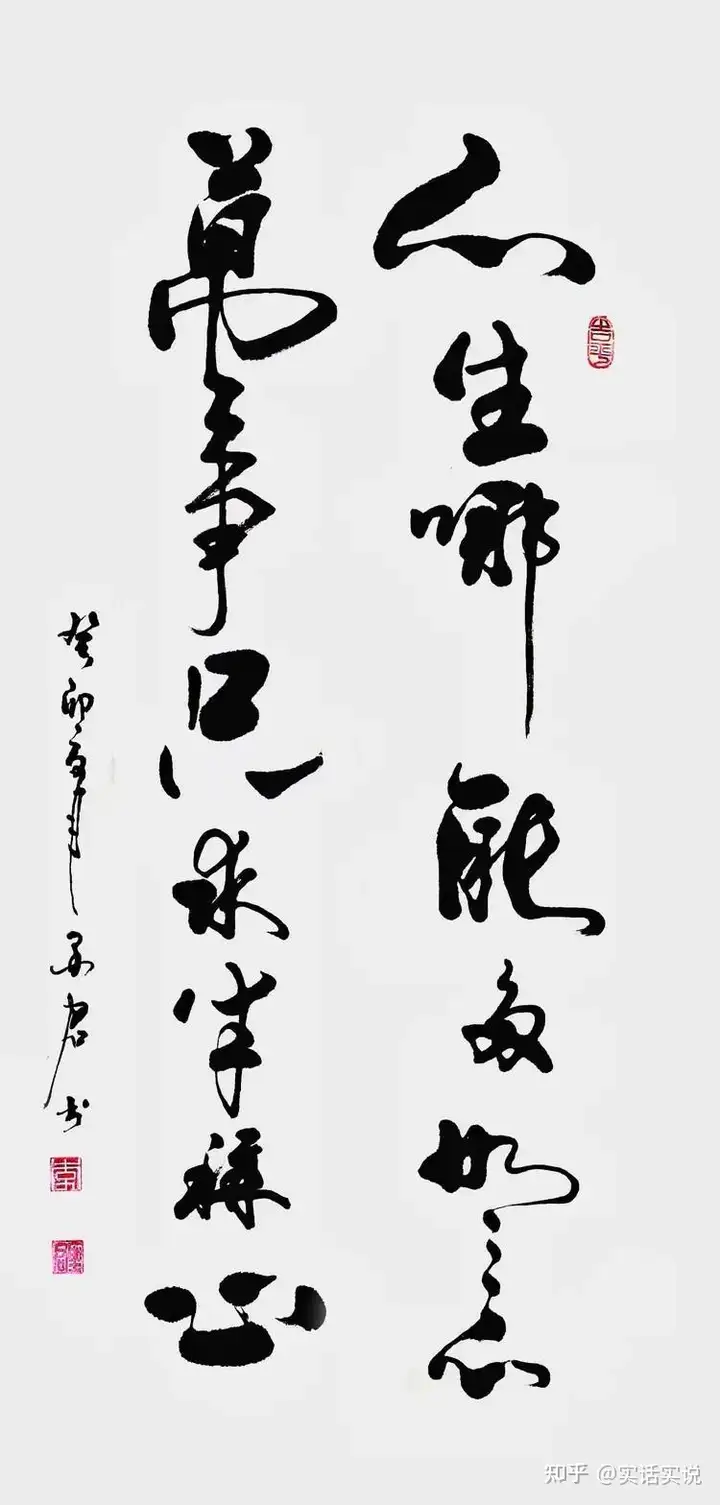 人生哪能多如意
萬事只求半稱心
癸卯年
君书
知乎 @实话实说